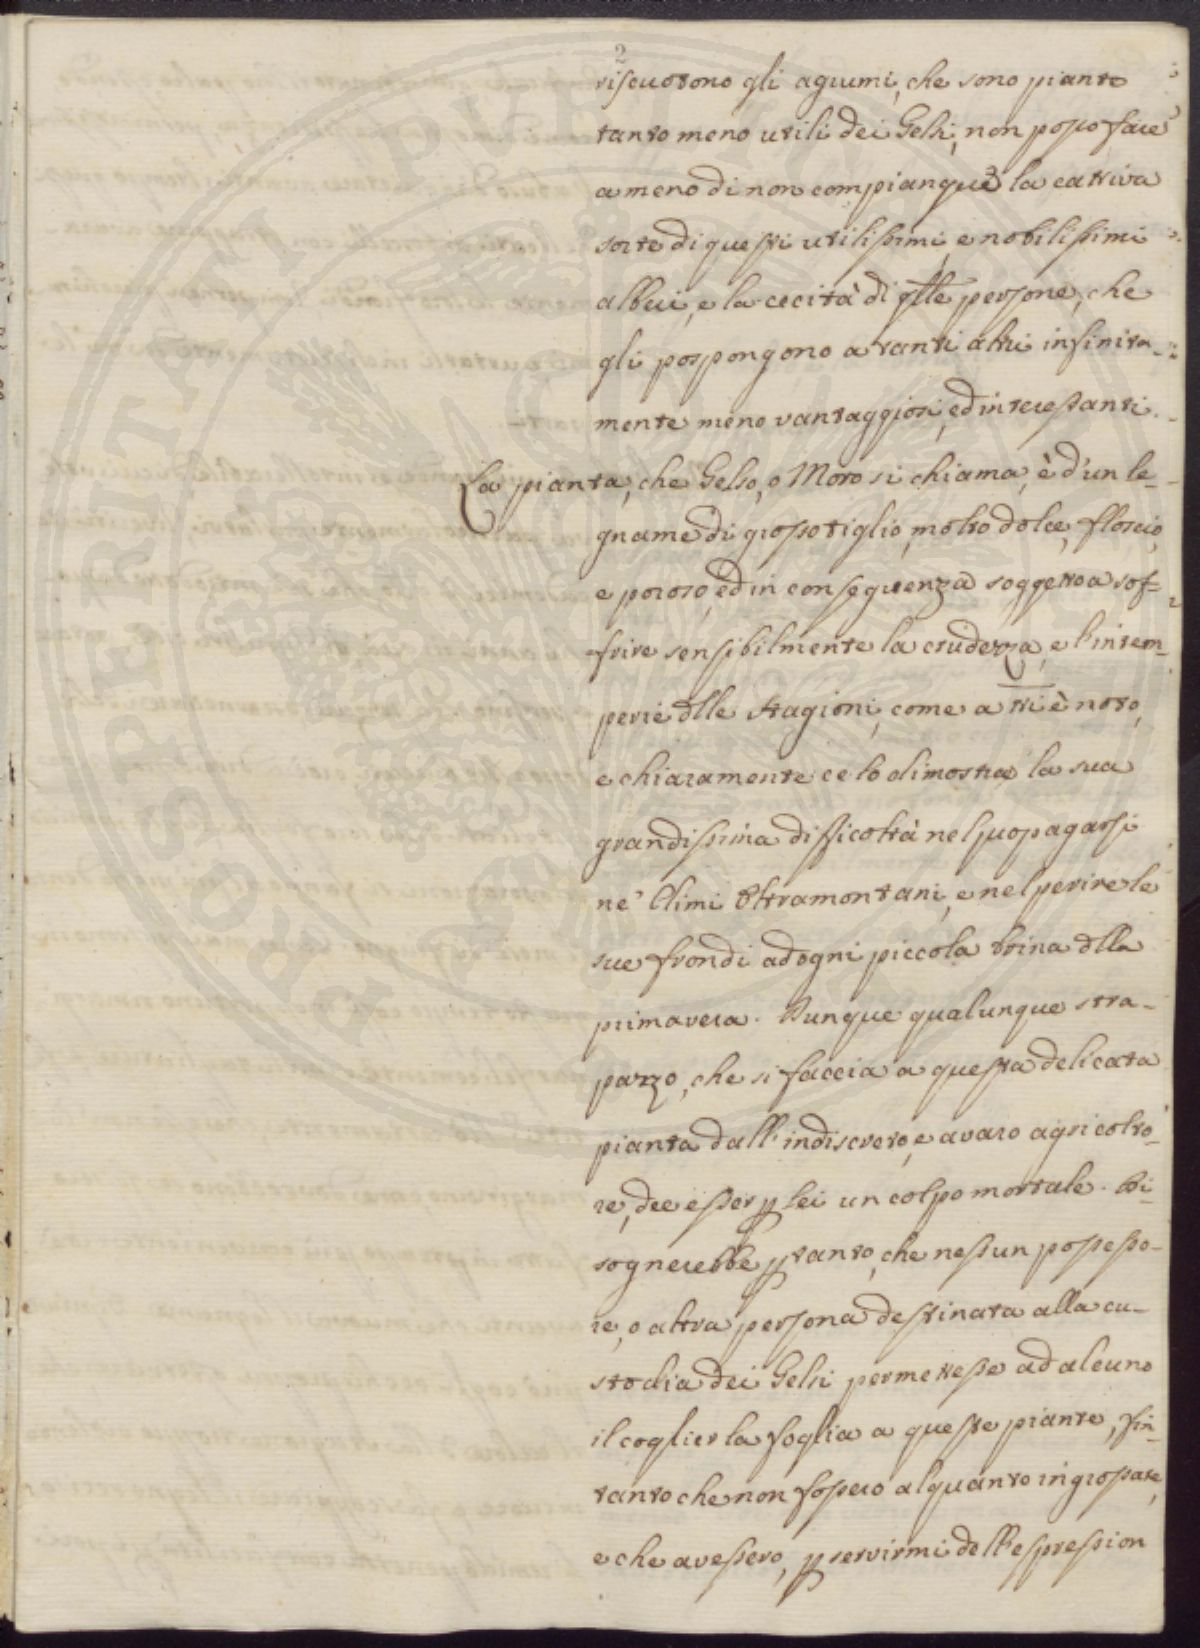 2
riscuotono gli agrumi, che sono piante
tanto meno utili dei Gelsi, non posso fare
a meno di non compiangere la cattiva
sorte di questi utilissimi, e nobilissimi
alberi, e la cecità di qlle persone, che
gli pospongono a tanti altri infinita-
mente meno vantaggiosi, ed interessanti.
La pianta, che Gelso, o Moro si chiama, è d'un le-
gname di grosso tiglio, molto dolce, floscio,
e poroso, ed in conseguenza soggetto a sof-
frire sensibilmente la crudezza, e l'intem-
perie dlle stagioni, come a tti è noto,
e chiaramente ce lo dimostra la sua
grandissima difficoltà nel propagarsi
ne' Climi Oltramontani, e nel perire le
sue frondi ad ogni piccola brina dlla
primavera. Dunque qualunque stra-
pazzo, che si faccia a questa delicata
pianta dall'indiscreto, e avaro agricolto-
re, dee esser p lei un colpo mortale. Bi-
sognerebbe ptanto, che nessun possesso-
re, o altra persona destinata alla cu-
stodia dei Gelsi permettesse ad alcuno
il coglier la foglia a queste piante, fin-
tanto che non fossero alquanto ingrossate,
e che avessero, p servirmi dell'espression
PROSPERITATI PVBLICAE